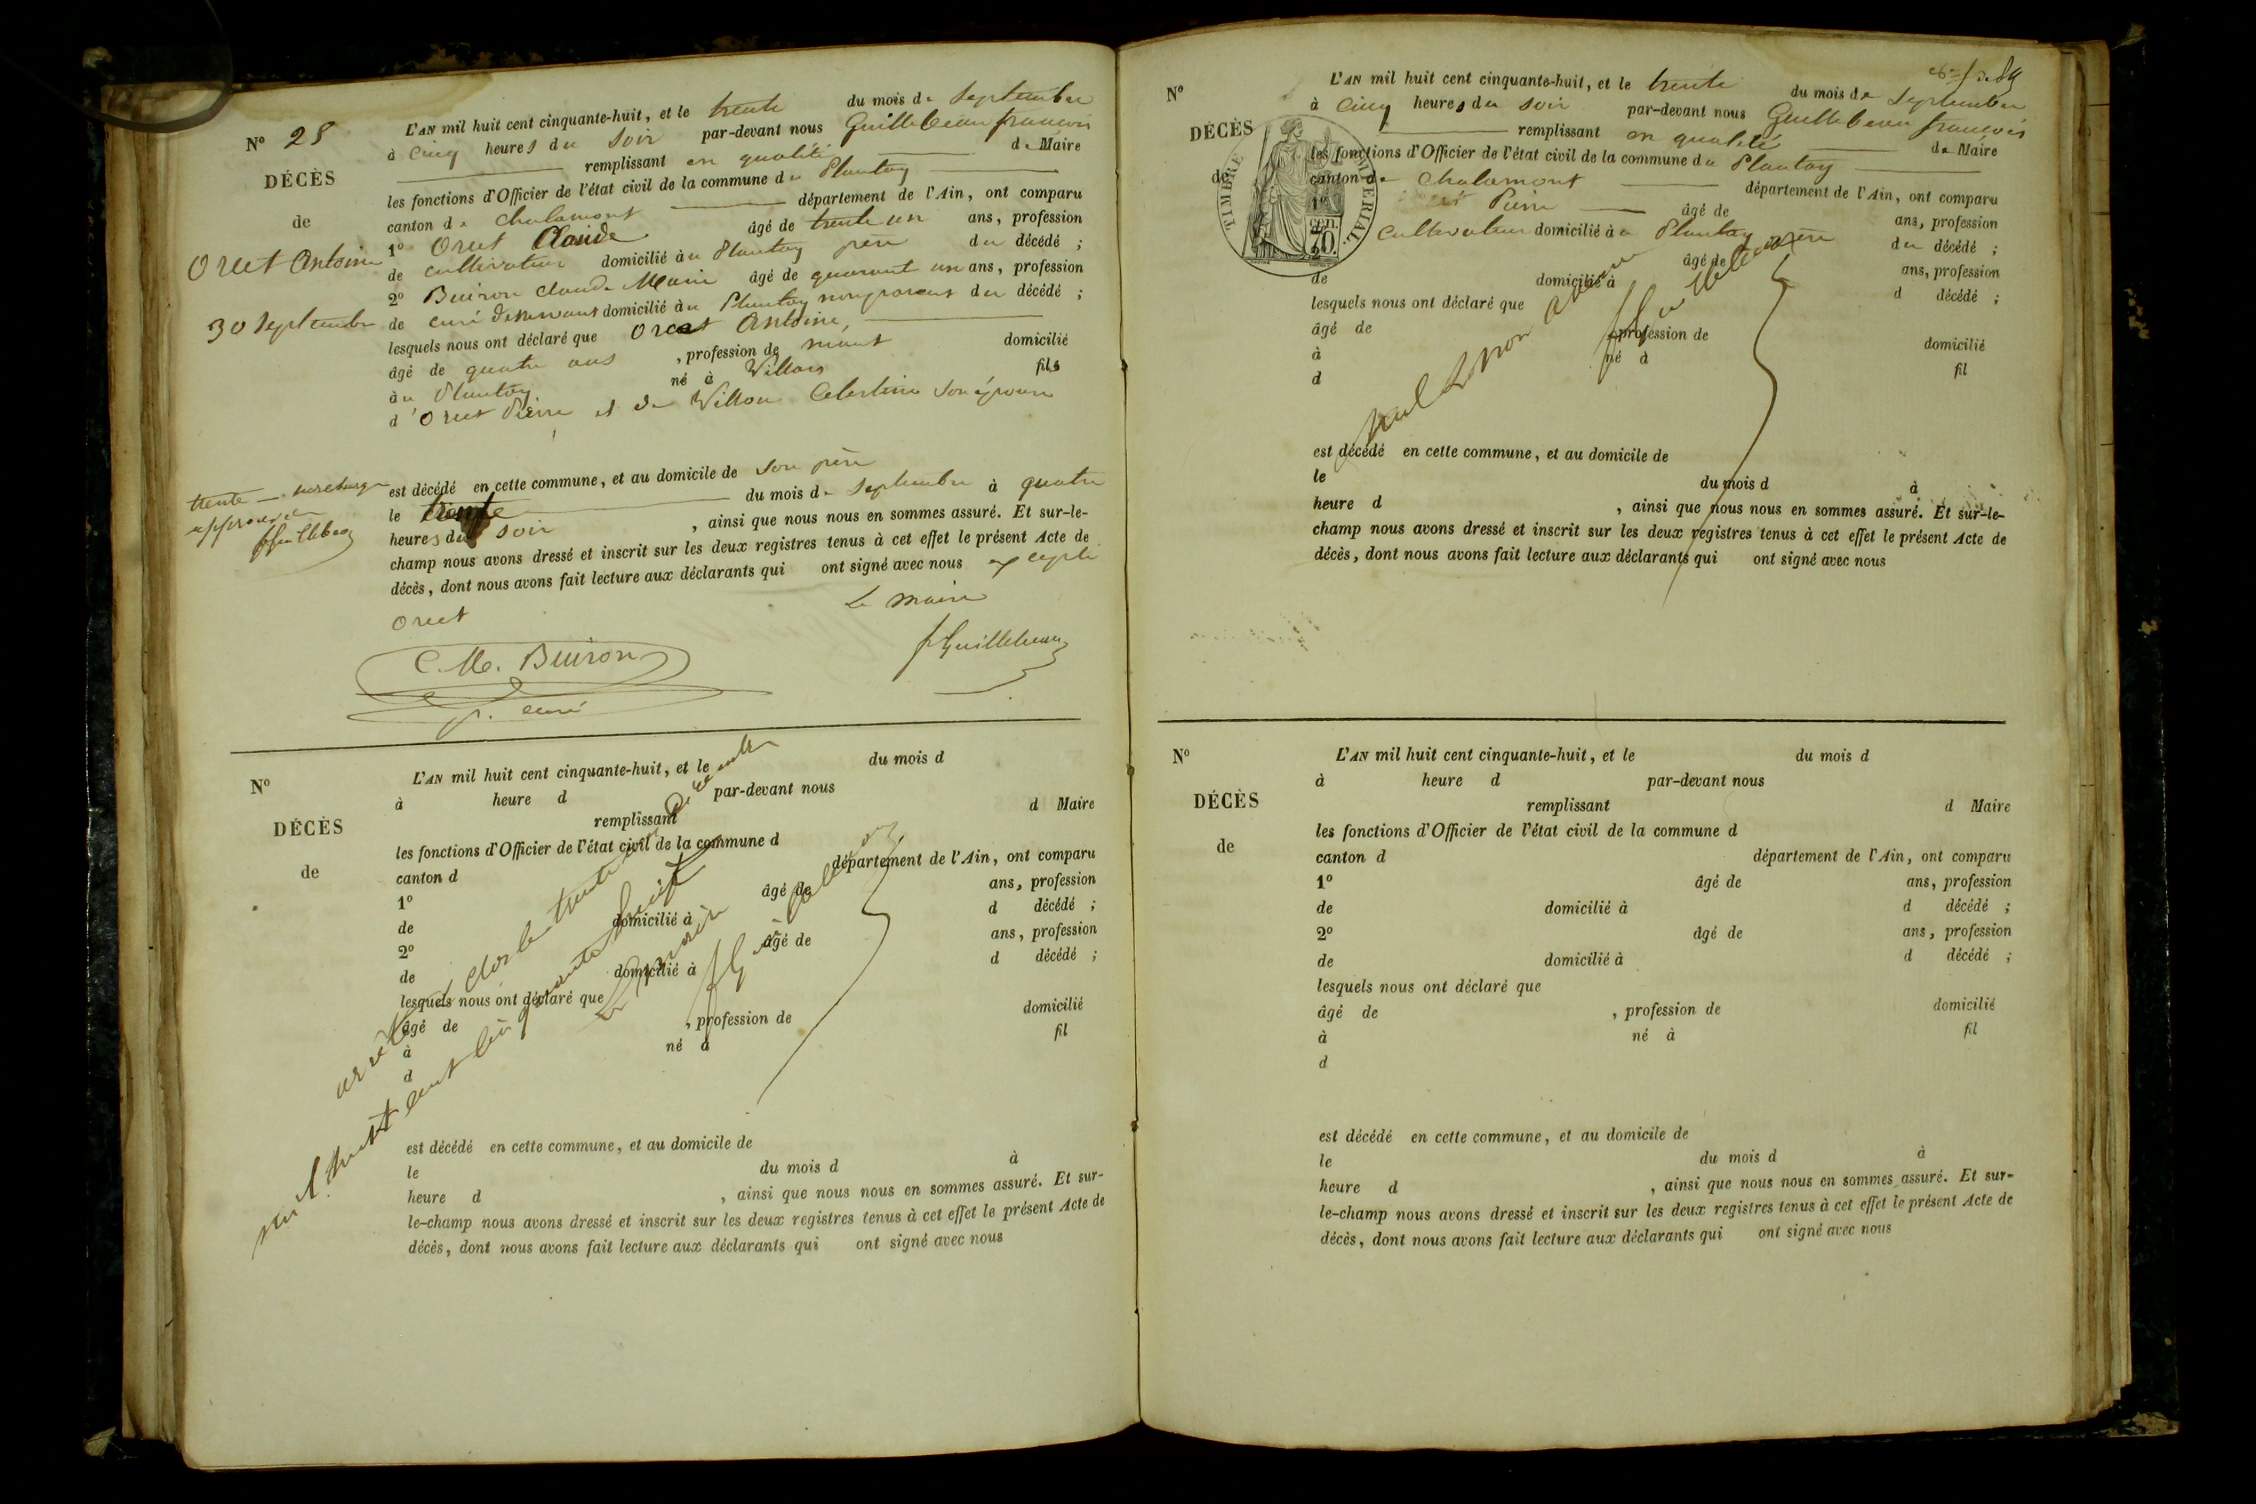 Nº 28
DÉCÈS
de
Orcet Antoine
30 Septembre
L'AN mil huit cent cinquante-huit, et le trente du mois de Septembre
à cinq heures du soir par-devant nous Guillebeau françois
remplissant en qualité de Maire
les fonctions d'Officier de l'état civil de la commune du Plantay
canton de Chalamont département de l'Ain, ont comparu
1º Orcet Claude âgé de trente un ans, profession
de cultivateur domicilié au Plantay père du décédé ;
2º Buiron Claude Marie âgé de quarante un ans, profession
de curé desservant domicilié au Plantay non parent du décédé ;
lesquels nous ont déclaré que Orcet Antoine,
âgé de quatre ans , profession de domicilié
au Plantay né à Villars fils
d'Orcet Pierre et de Celestine son épouse
est décédé en cette commune, et au domicile de son père
le trente du mois de Septembre à quatre
heures du soir , ainsi que nous nous en sommes assuré. Et sur-le-
champ nous avons dressé et inscrit sur les deux registres tenus à cet effet le présent Acte de
décès, dont nous avons fait lecture aux déclarants qui ont signé avec nous excepté
Orcet
Le maire
trente surcharge
approuvée
fGuillebeau
C. M. Buiron
p. curé
fGuillebeau
Nº
DÉCÈS
de
L'AN mil huit cent cinquante-huit, et le du mois d
à heure d par-devant nous
remplissant d Maire
les fonctions d'Officier de l'état civil de la commune d
canton d département de l'Ain, ont comparu
1º âgé de ans, profession
de domicilié à d décédé ;
2º âgé de ans, profession
de domicilié à d décédé ;
lesquels nous ont déclaré que
âgé de , profession de domicilié
à né à fil
d
est décédé en cette commune, et au domicile de
le du mois d à
heure d , ainsi que nous nous en sommes assuré. Et sur-
le-champ nous avons dressé et inscrit sur les deux registres tenus à cet effet le présent Acte de
décès, dont nous avons fait lecture aux déclarants qui ont signé avec nous
arrêté et clos le trente un Décembre
mil huit cent cinquante huit
Le maire
fGuillebeau
Nº
DÉCÈS
de
TIMBRE IMPÉRIAL
L'AN mil huit cent cinquante-huit, et le trente du mois de Septembre
à cinq heures du soir par-devant nous Guillebeau françois
remplissant en qualité de Maire
les fonctions d'Officier de l'état civil de la commune du Plantay
canton de Chalamont département de l'Ain, ont comparu
Pierre âgé de ans, profession
cultivateur domicilié au Plantay père du décédé ;
âgé de ans, profession
de domicilié à d décédé ;
lesquels nous ont déclaré que
âgé de , profession de domicilié
à né à fil
d
nul et non avenu
fGuillebeau
est décédé en cette commune, et au domicile de
le du mois d à
heure d , ainsi que nous nous en sommes assuré. Et sur-le-
champ nous avons dressé et inscrit sur les deux registres tenus à cet effet le présent Acte de
décès, dont nous avons fait lecture aux déclarants qui ont signé avec nous
Nº
DÉCÈS
de
L'AN mil huit cent cinquante-huit, et le du mois d
à heure d par-devant nous
remplissant d Maire
les fonctions d'Officier de l'état civil de la commune d
canton d département de l'Ain, ont comparu
1º âgé de ans, profession
de domicilié à d décédé ;
2º âgé de ans, profession
de domicilié à d décédé ;
lesquels nous ont déclaré que
âgé de , profession de domicilié
à né à fil
d
est décédé en cette commune, et au domicile de
le du mois d à
heure d , ainsi que nous nous en sommes assuré. Et sur-
le-champ nous avons dressé et inscrit sur les deux registres tenus à cet effet le présent Acte de
décès, dont nous avons fait lecture aux déclarants qui ont signé avec nous